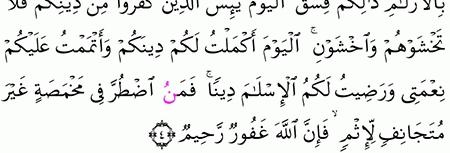 بِٱلۡأَزۡلَٰمِۚ ذَٰلِكُمۡ فِسۡقٌۗ ٱلۡيَوۡمَ يَئِسَ ٱلَّذِينَ كَفَرُواْ مِن دِينِكُمۡ فَلَا
تَخۡشَوۡهُمۡ وَٱخۡشَوۡنِۚ ٱلۡيَوۡمَ أَكۡمَلۡتُ لَكُمۡ دِينَكُمۡ وَأَتۡمَمۡتُ عَلَيۡكُمۡ
نِعۡمَتِي وَرَضِيتُ لَكُمُ ٱلۡإِسۡلَٰمَ دِينٗاۚ فَمَنُ ٱضۡطُرَّ فِي مَخۡمَصَةٍ غَيۡرَ
مُتَجَانِفٖ لِّإِثۡمٖۙ فَإِنَّ ٱللَّهَ غَفُورٞ رَّحِيمٞ ﴿٤﴾